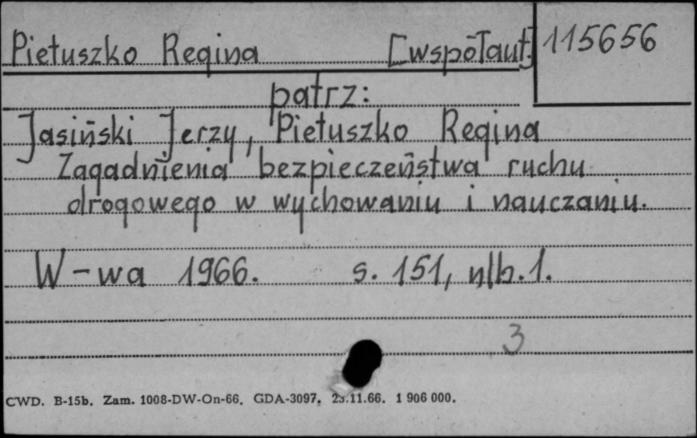 Pietuszko Regina [współaut.] 115656
patrz:
Jasiński Jerzy, Pietuszko Regina
Zagadnienia bezpieczeństwa ruchu
drogowego w wychowaniu i nauczaniu.
W-wa 1966. s. 151, nlb. 1.
3
CWD. B-15b. Zam. 1008-DW-On-66. GDA-3097. 23.11.66. 1 906 000.